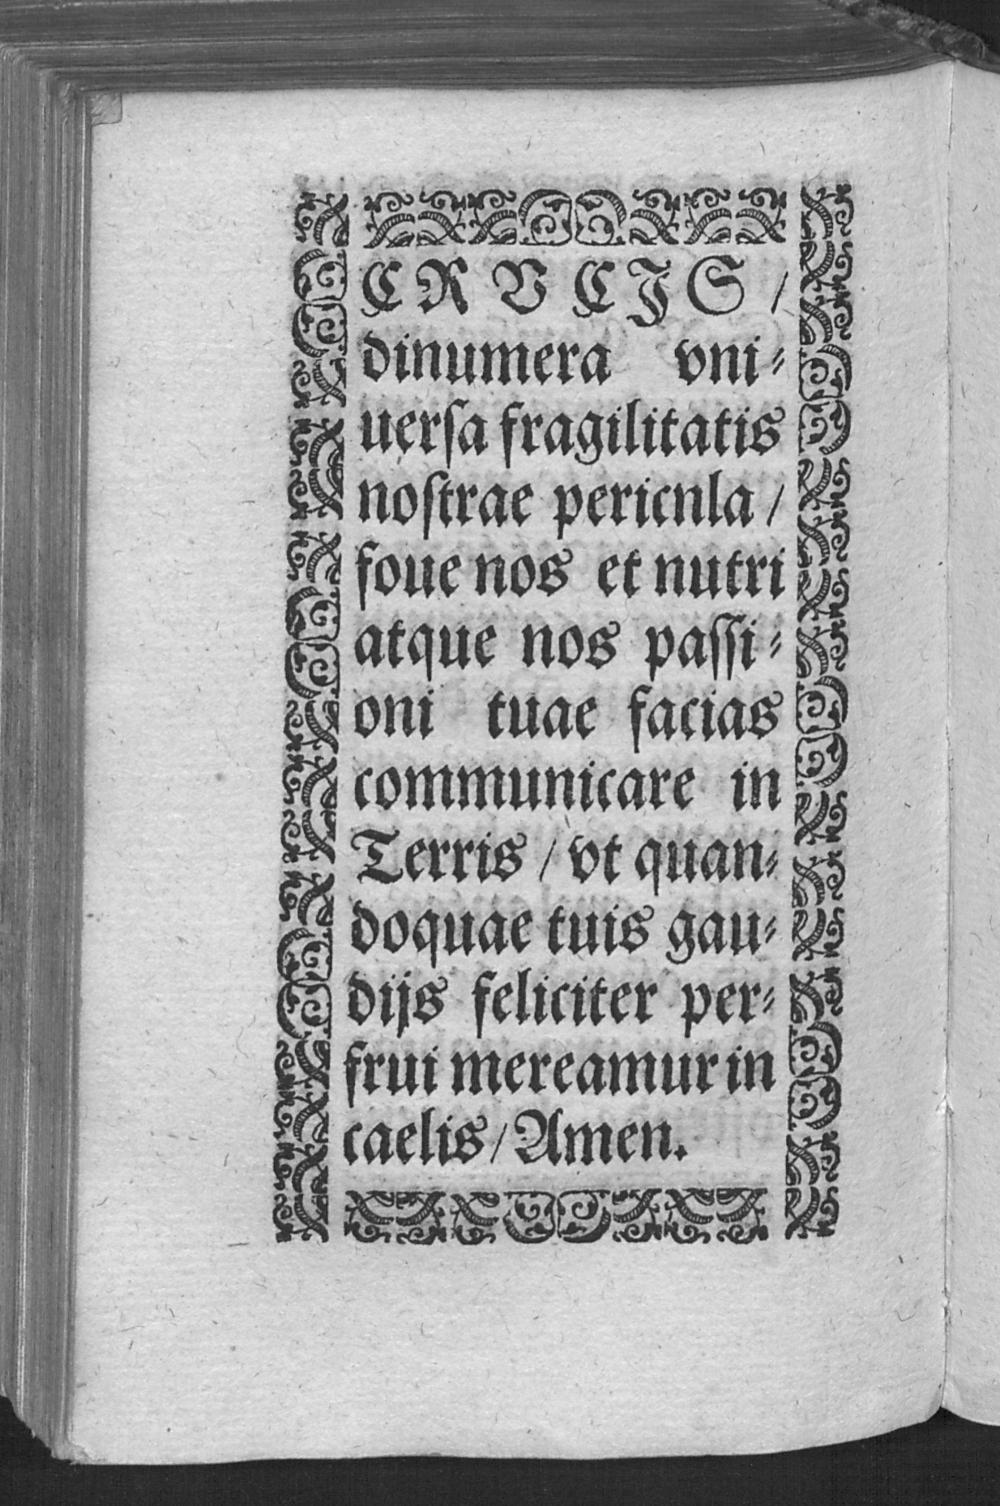 CRVCIS /
dinumera vni⸗
uerſa fragilitatis
noſtrae pericnla /
foue nos et nutri
atque nos paſſi⸗
oni tuae facias
communicare in
Terris / vt quan⸗
doquae tuis gau⸗
dijs feliciter per⸗
frui mereamur in
caelis / Amen.